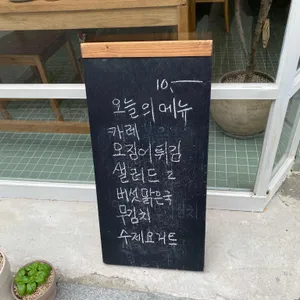 10,—
오늘의메뉴
카레
오징어튀김
샐러드 2
버섯맑은국
무김치
수제요거트